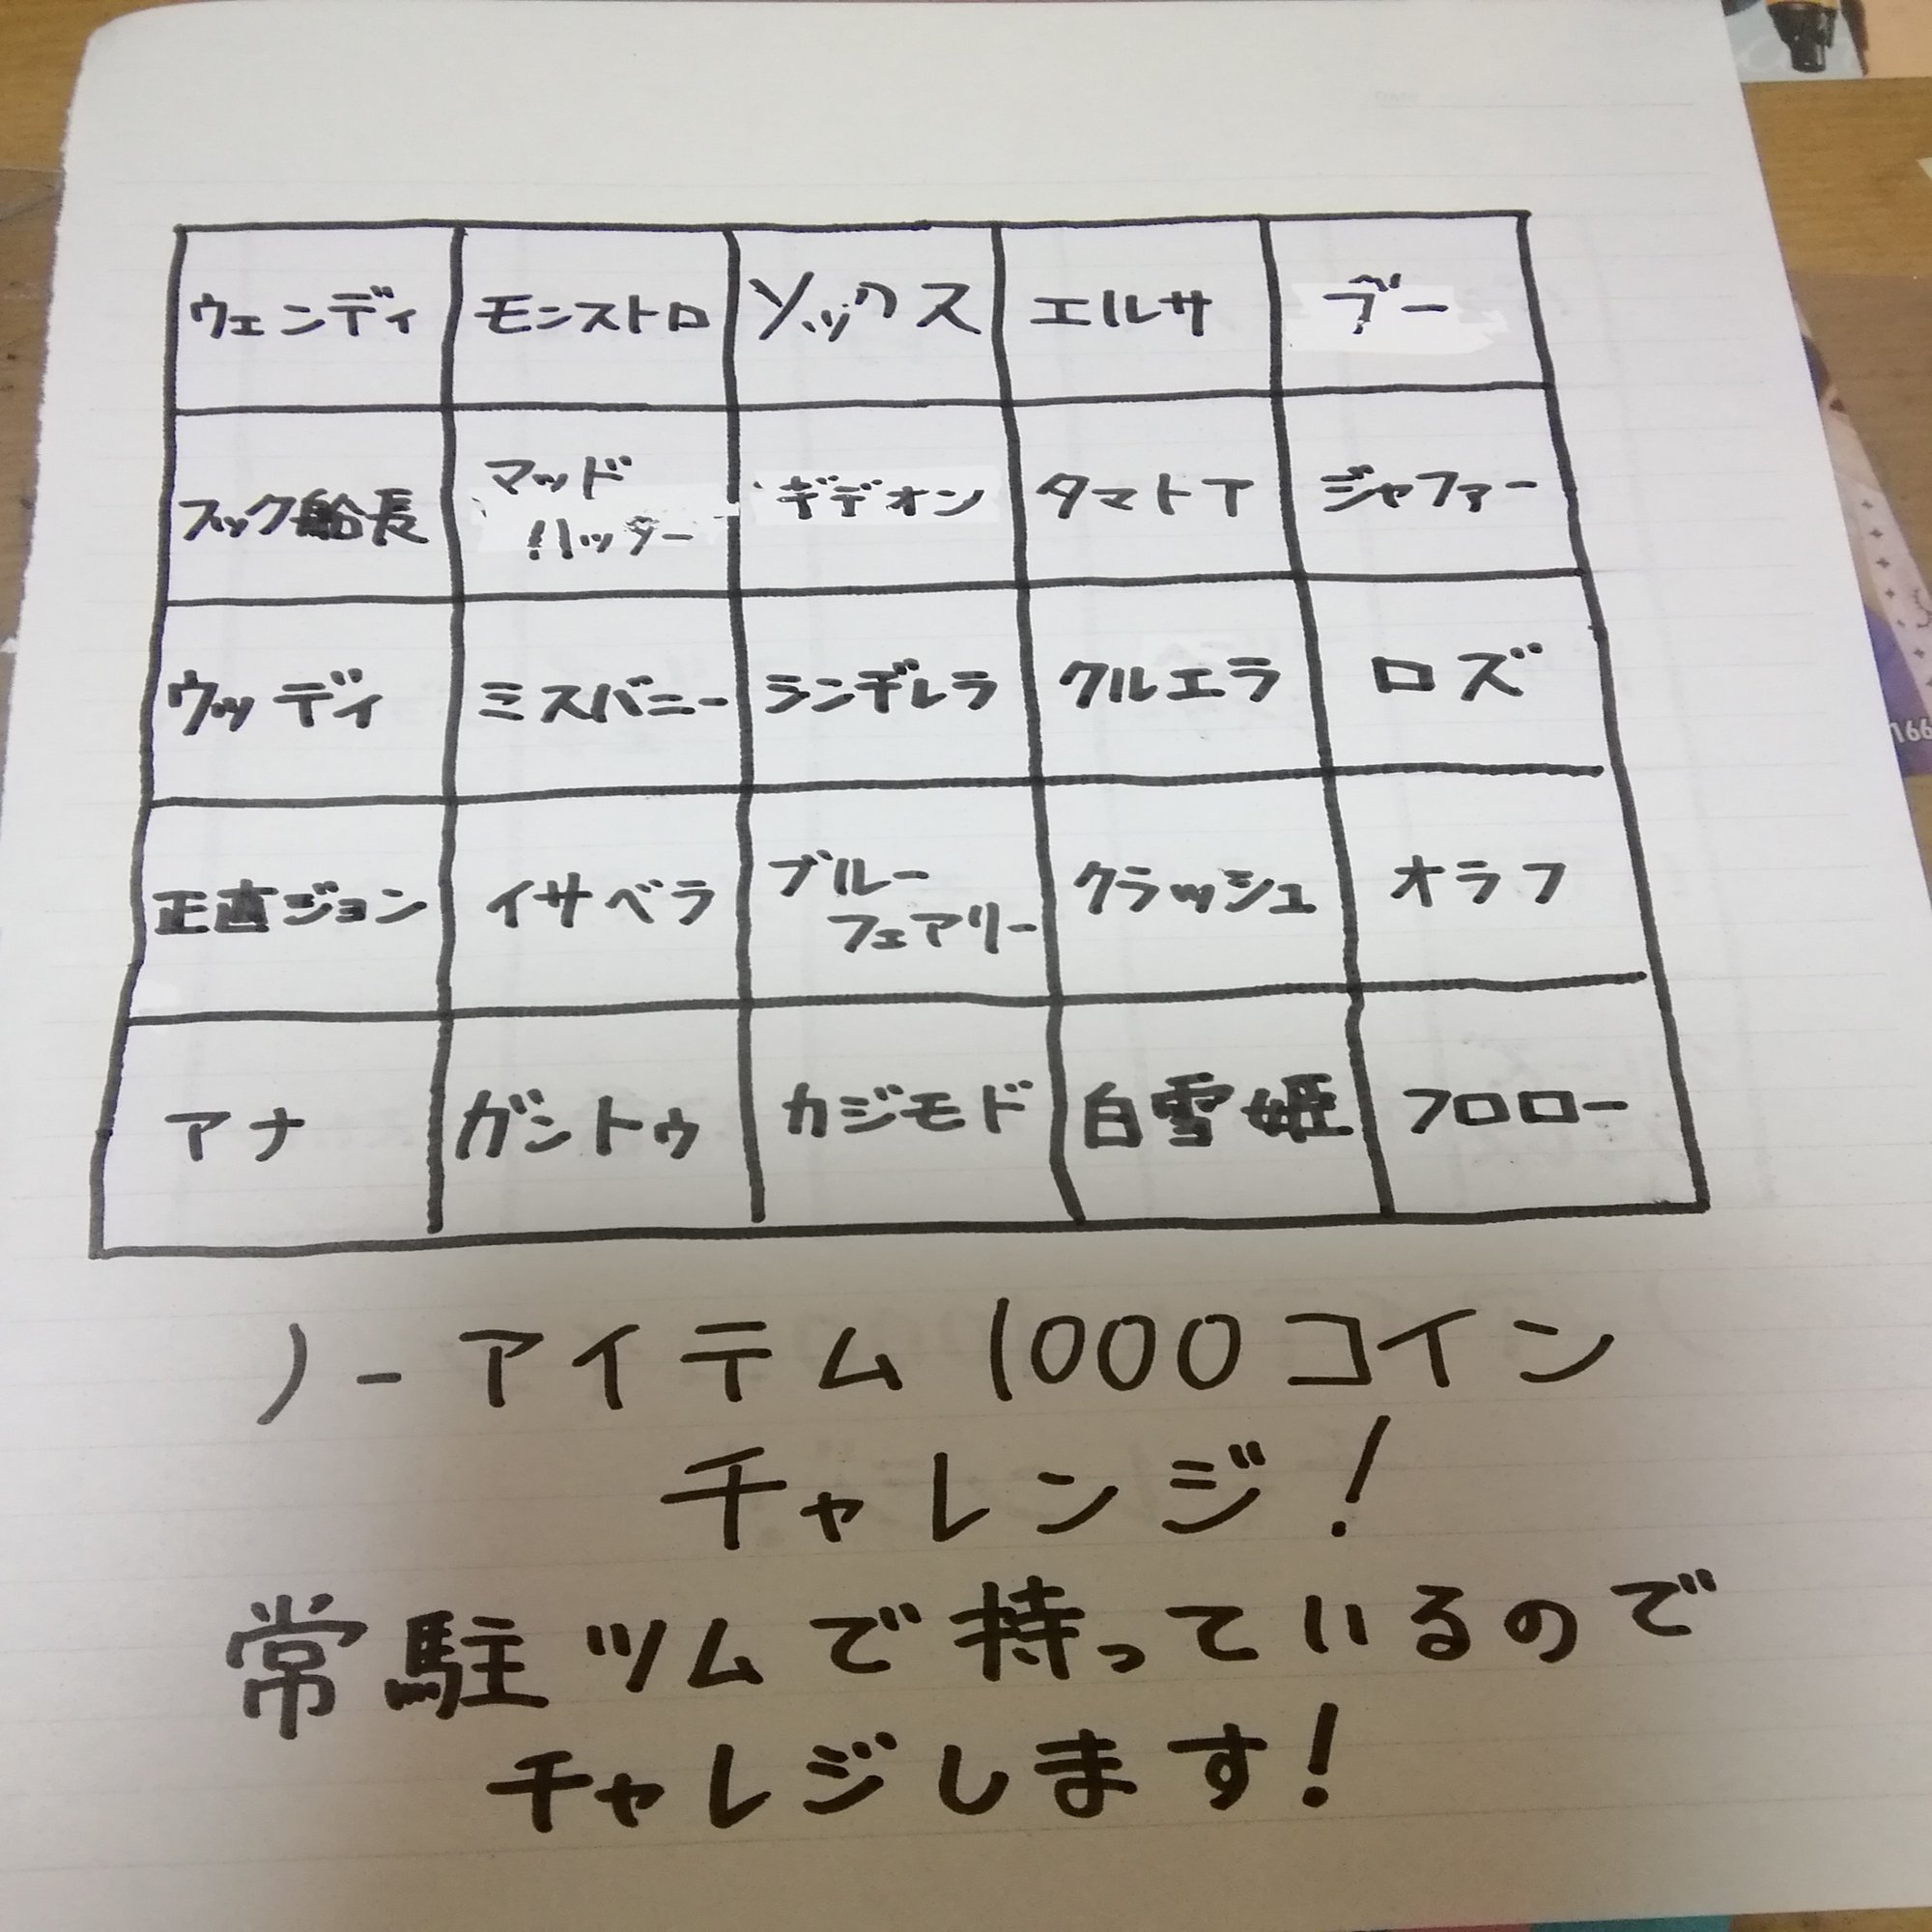 ウェンディ モンストロ ゾックス エルサ ブー
フック船長 マッド ハッター ギデオン タマトア ジャファー
ウッディ ミスバニー ランデレラ クルエラ ロズ
正直ジョン イサベラ ブルー フェアリー クラッシュ オラフ
アナ ガントゥ カジモド 白雪姫 フロロー
ノーアイテム1000コイン
チャレンジ!
常駐ツムで持っているので
チャレジします!
166